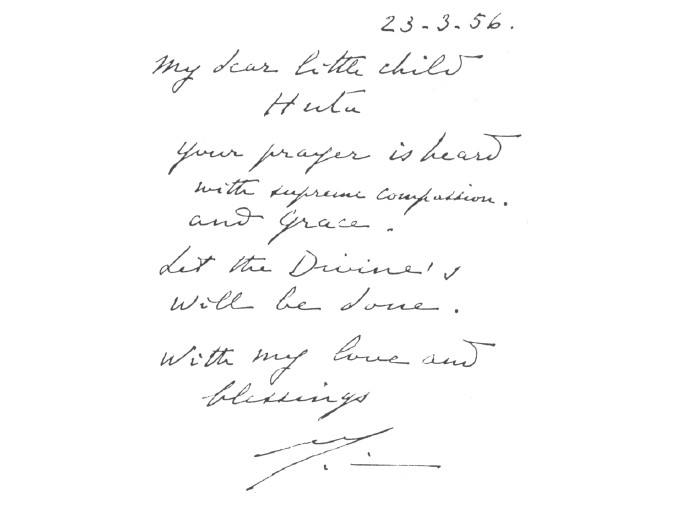 23-3-56.
My dear little child
Huta
Your prayer is heard
with supreme compassion.
and Grace.
Let the Divine's
will be done.
With my love and
blessings